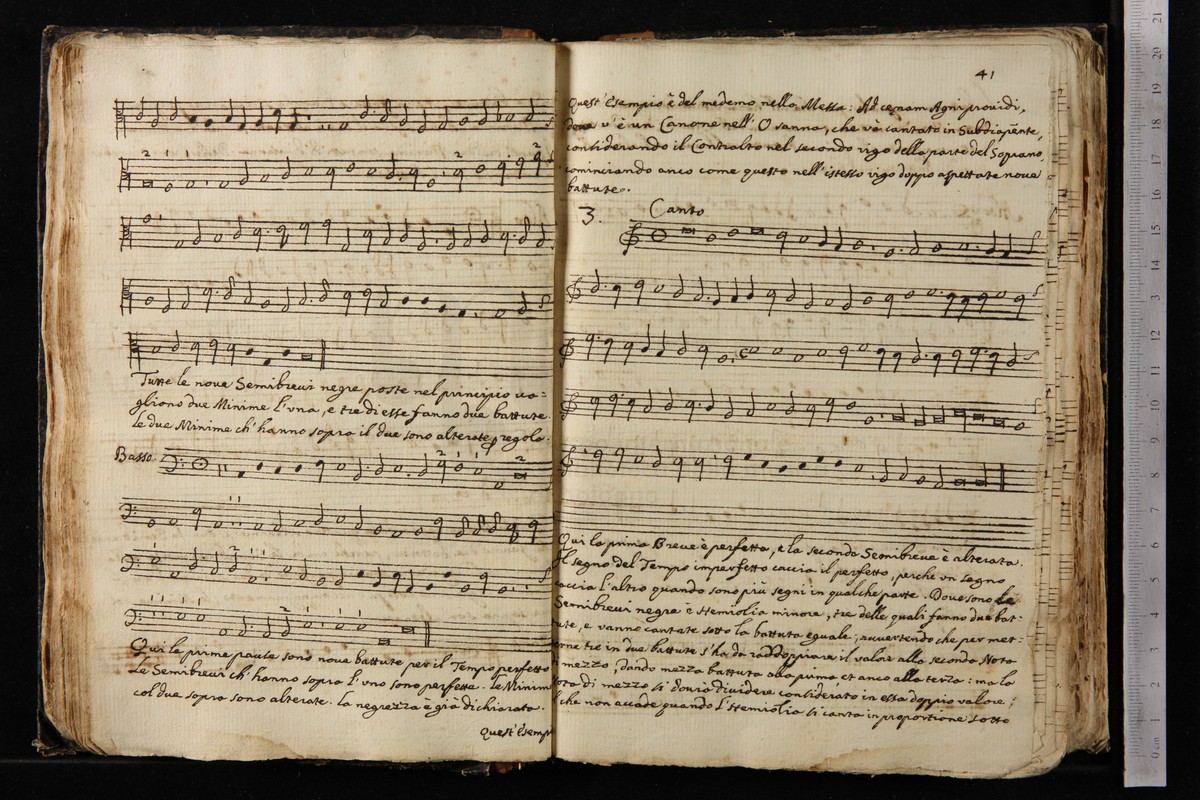 Tutte le noue Semibreui negre poste nel principio ua=
gliono due Minime l'vna, e tre di esse fanno due battute.
le due Minime ch'hanno sopra il due sono alterate regola.
Basso.
Qui le prime pause sono noue battute per il Tempo perfetto
Le Semibreui ch'hanno sopra l'vno sono perfette. le Minime
col due sopra sono alterate. la negrezza è già dichiarata.
Quest'Esemp
41
Quest'Esempio è del medemo nella Messa: Ad cęnam Agni prouidi,
doue v'è un Canone nell'O sanna, che và cantato in Subdiapente,
considerando il Contralto nel secondo rigo della parte del Soprano,
cominciando anco come questo nell'istesso rigo doppo aspettate noue
battute.
3. Canto
Qui la prima Breue è perfetta, e la seconda Semibreue è alterata.
Il segno del Tempo imperfetto caccia il perfetto, perche vn segno
caccia l'altro quando sono più segni in qualche parte. Doue sono le
Semibreui negre è Hemiolia minore, tre delle quali fanno due bat-
tute, e vanno cantate sotto la battuta eguale; auuertendo che per met-
erne tre in due battute s'ha da raddoppiare il valor alla seconda Nota
mezzo, dando mezza battuta alla prima et anco alla terza: ma la
ota di mezzo si dourà diuidere considerato in essa doppio valore;
che non accade quando l'Hemiolia si canta in proportione sotto